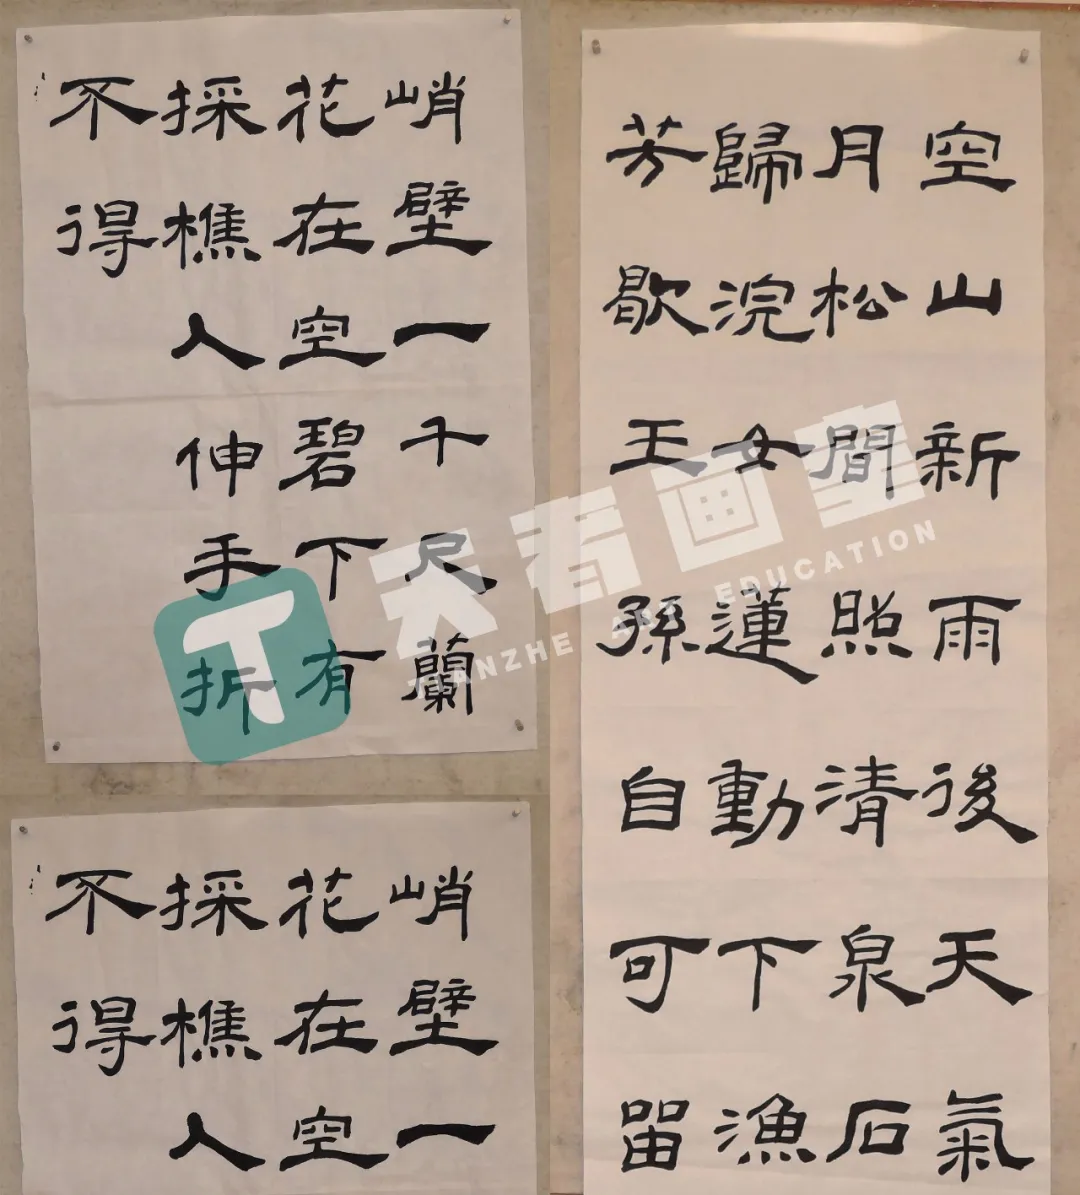 峭壁一千尺蘭
花在空碧下有
採樵人伸手折
不得
空山新雨後天氣
月松間照清泉石
歸浣女蓮動下漁
芳歇王孫自可留
峭壁一
花在空
採樵人
不得
天者画室
TIANZHE ART EDUCATION